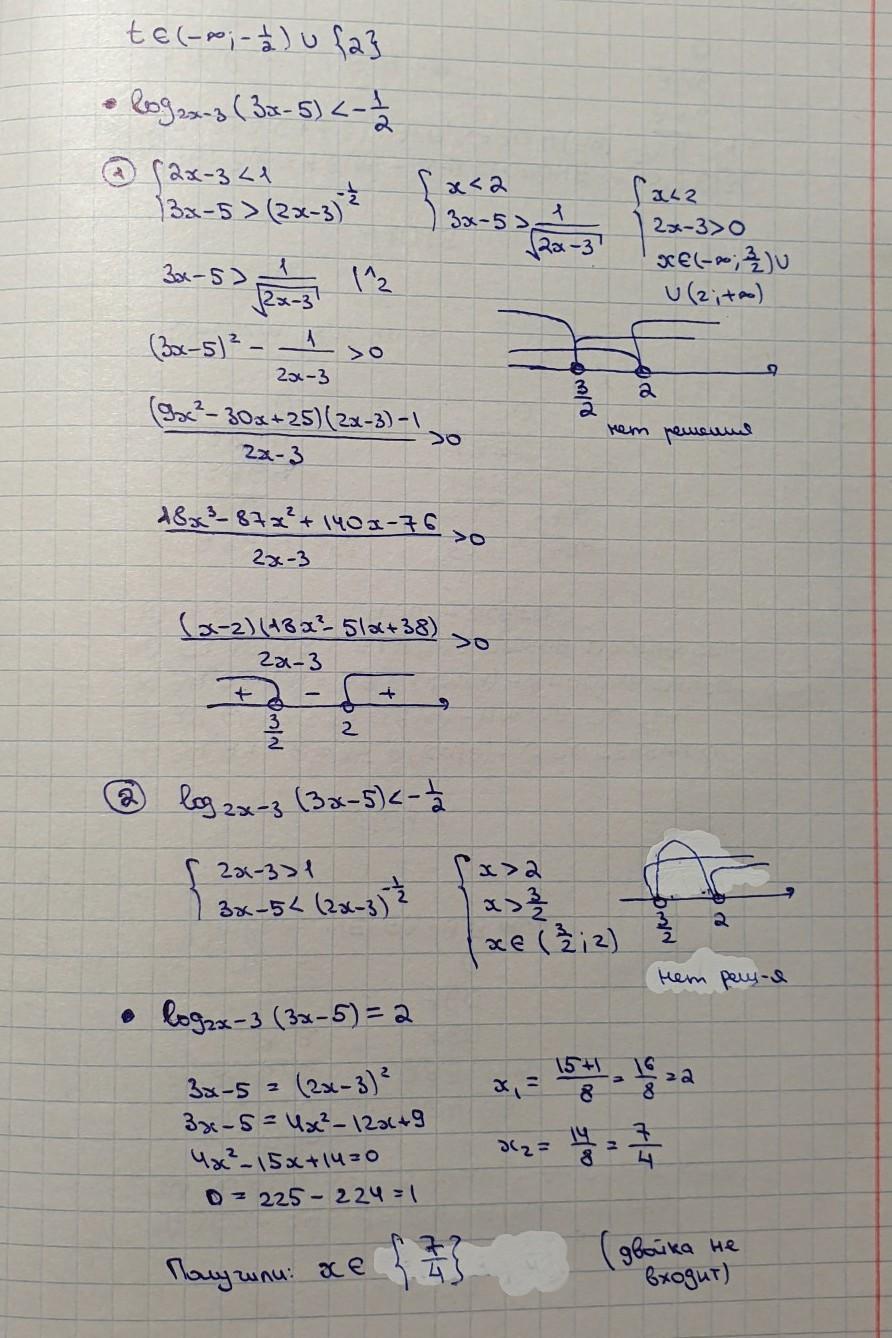 t ∈ (-∞; -1/2) ∪ {2}
• log_{2x-3} (3x-5) < -1/2
① { 2x-3 < 1
3x-5 > (2x-3)^{-1/2}
{ x < 2
3x-5 > 1/√(2x-3)
{ x < 2
2x-3 > 0
x ∈ (-∞; 3/2) ∪
∪ (2; +∞)
3/2 2
нет решения
3x-5 > 1/√(2x-3) |^2
(3x-5)² - 1/(2x-3) > 0
(9x²-30x+25)(2x-3)-1 / 2x-3 > 0
18x³-87x²+140x-76 / 2x-3 > 0
(x-2)(18x²-51x+38) / 2x-3 > 0
+ - +
3/2 2
② log_{2x-3} (3x-5) < -1/2
{ 2x-3 > 1
3x-5 < (2x-3)^{-1/2}
{ x > 2
x > 3/2
x ∈ (3/2; 2)
3/2 2
нет реш-я
• log_{2x-3} (3x-5) = 2
3x-5 = (2x-3)²
3x-5 = 4x²-12x+9
4x²-15x+14=0
D = 225-224=1
x₁ = 15+1/8 = 16/8 = 2
x₂ = 14/8 = 7/4
Получили: x ∈ {7/4}
(двойка не
входит)